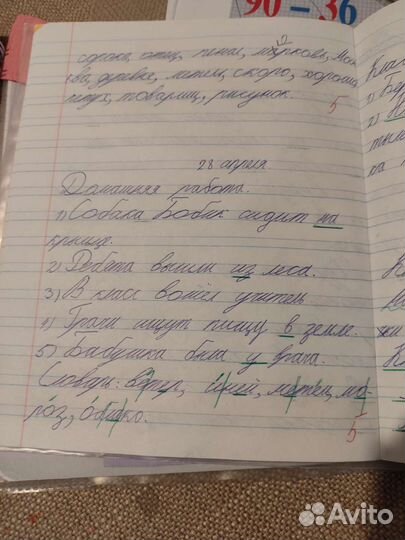 90 - 36
сорока, отец, пенал, морковь, Мос
ква, деревня, метель, скоро, хорошо,
петух, товарищ, рисунок.
5
28 апреля.
Домашняя работа.
1) Собака Бобик сидит на
крыльце.
2) Ребята вышли из леса.
3) В класс вошёл учитель
4) Грачи ищут пищу в земле.
5) Бабушка была у врача.
Словарь: ветер, иней, метель, мо-
роз, облако.
5
Avito